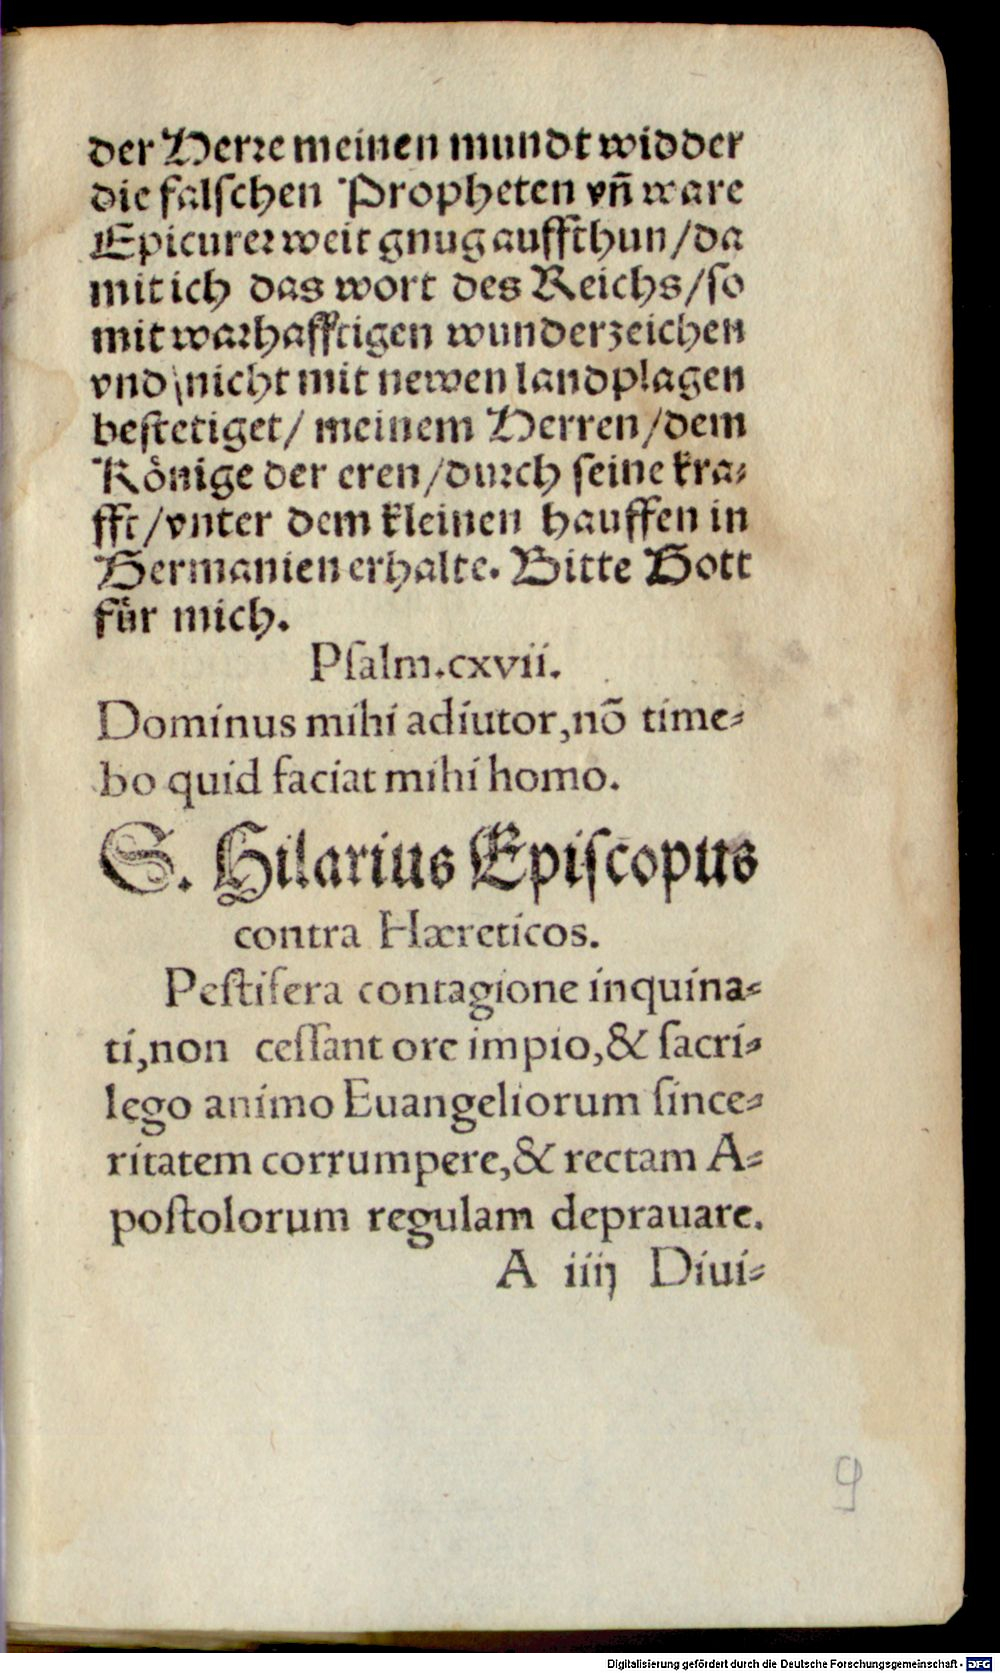 der Herꝛe meinen mundt widder
die falſchen Propheten vñ ware
Epicureꝛ weit gnug auffthun/da
mit ich das wort des Reichs/ſo
mit waꝛhafftigen wunderzeichen
vnd nicht mit newen landplagen
beſtetiget/ meinem Herren/dem
Koͤnige der eren/duꝛch ſeine kra⸗
fft/vnter dem kleinen hauffen in
Germanien erhalte. Bitte Gott
fuͤr mich.
Pſalm.cxvii.
Dominus mihi adiutor,nō time⸗
bo quid faciat mihi homo.
S. Hilarius Epiſcopus
contra Hæreticos.
Peſtifera contagione inquina⸗
ti,non ceſſant ore impio,& ſacri⸗
lego animo Euangeliorum ſince⸗
ritatem corrumpere,& rectam A⸗
poſtolorum regulam deprauare.
A iiij Diui⸗
9
Digitalisierung gefördert durch die Deutsche Forschungsgemeinschaft - DFG